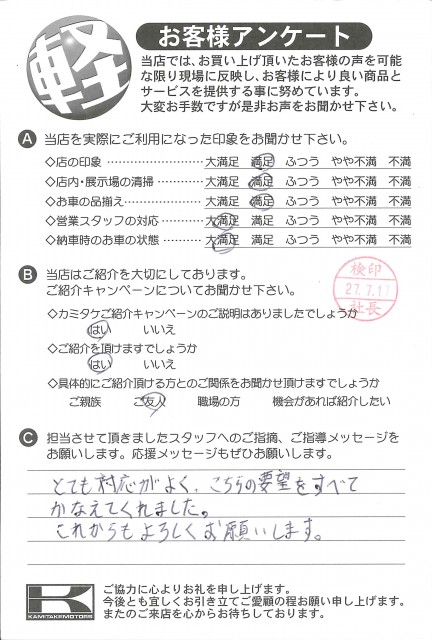 軽
お客様アンケート
当店では、お買い上げ頂いたお客様の声を可能
な限り現場に反映し、お客様により良い商品と
サービスを提供する事に努めています。
大変お手数ですが是非お声をお聞かせ下さい。
A 当店を実際にご利用になった印象をお聞かせ下さい。
◇店の印象 …………………… 大満足 満足 ふつう やや不満 不満
◇店内・展示場の清掃 ………… 大満足 満足 ふつう やや不満 不満
◇お車の品揃え ……………… 大満足 満足 ふつう やや不満 不満
◇営業スタッフの対応 ………… 大満足 満足 ふつう やや不満 不満
◇納車時のお車の状態 ………… 大満足 満足 ふつう やや不満 不満
B 当店はご紹介を大切にしてあります。
ご紹介キャンペーンについてお聞かせ下さい。
検印
27.7.17
社長
◇カミタケご紹介キャンペーンのご説明はありましたでしょうか
はい いいえ
◇ご紹介を頂けますでしょうか
はい いいえ
◇具体的にご紹介頂ける方とのご関係をお聞かせ頂けますでしょうか
ご親族 ご友人 職場の方 機会があれば紹介したい
C 担当させて頂きましたスタッフへのご指摘、ご指導メッセージを
お願いします。応援メッセージもぜひお願いします。
とても対応がよく、こちらの要望をすべて
かなえてくれました。
これからもよろしくお願いします。
K
KAMITAKEMOTORS
ご協力に心よりお礼を申し上げます。
今後とも宜しくお引き立てご愛顧の程お願い申し上げます。
またのご来店を心からお待ちしております。